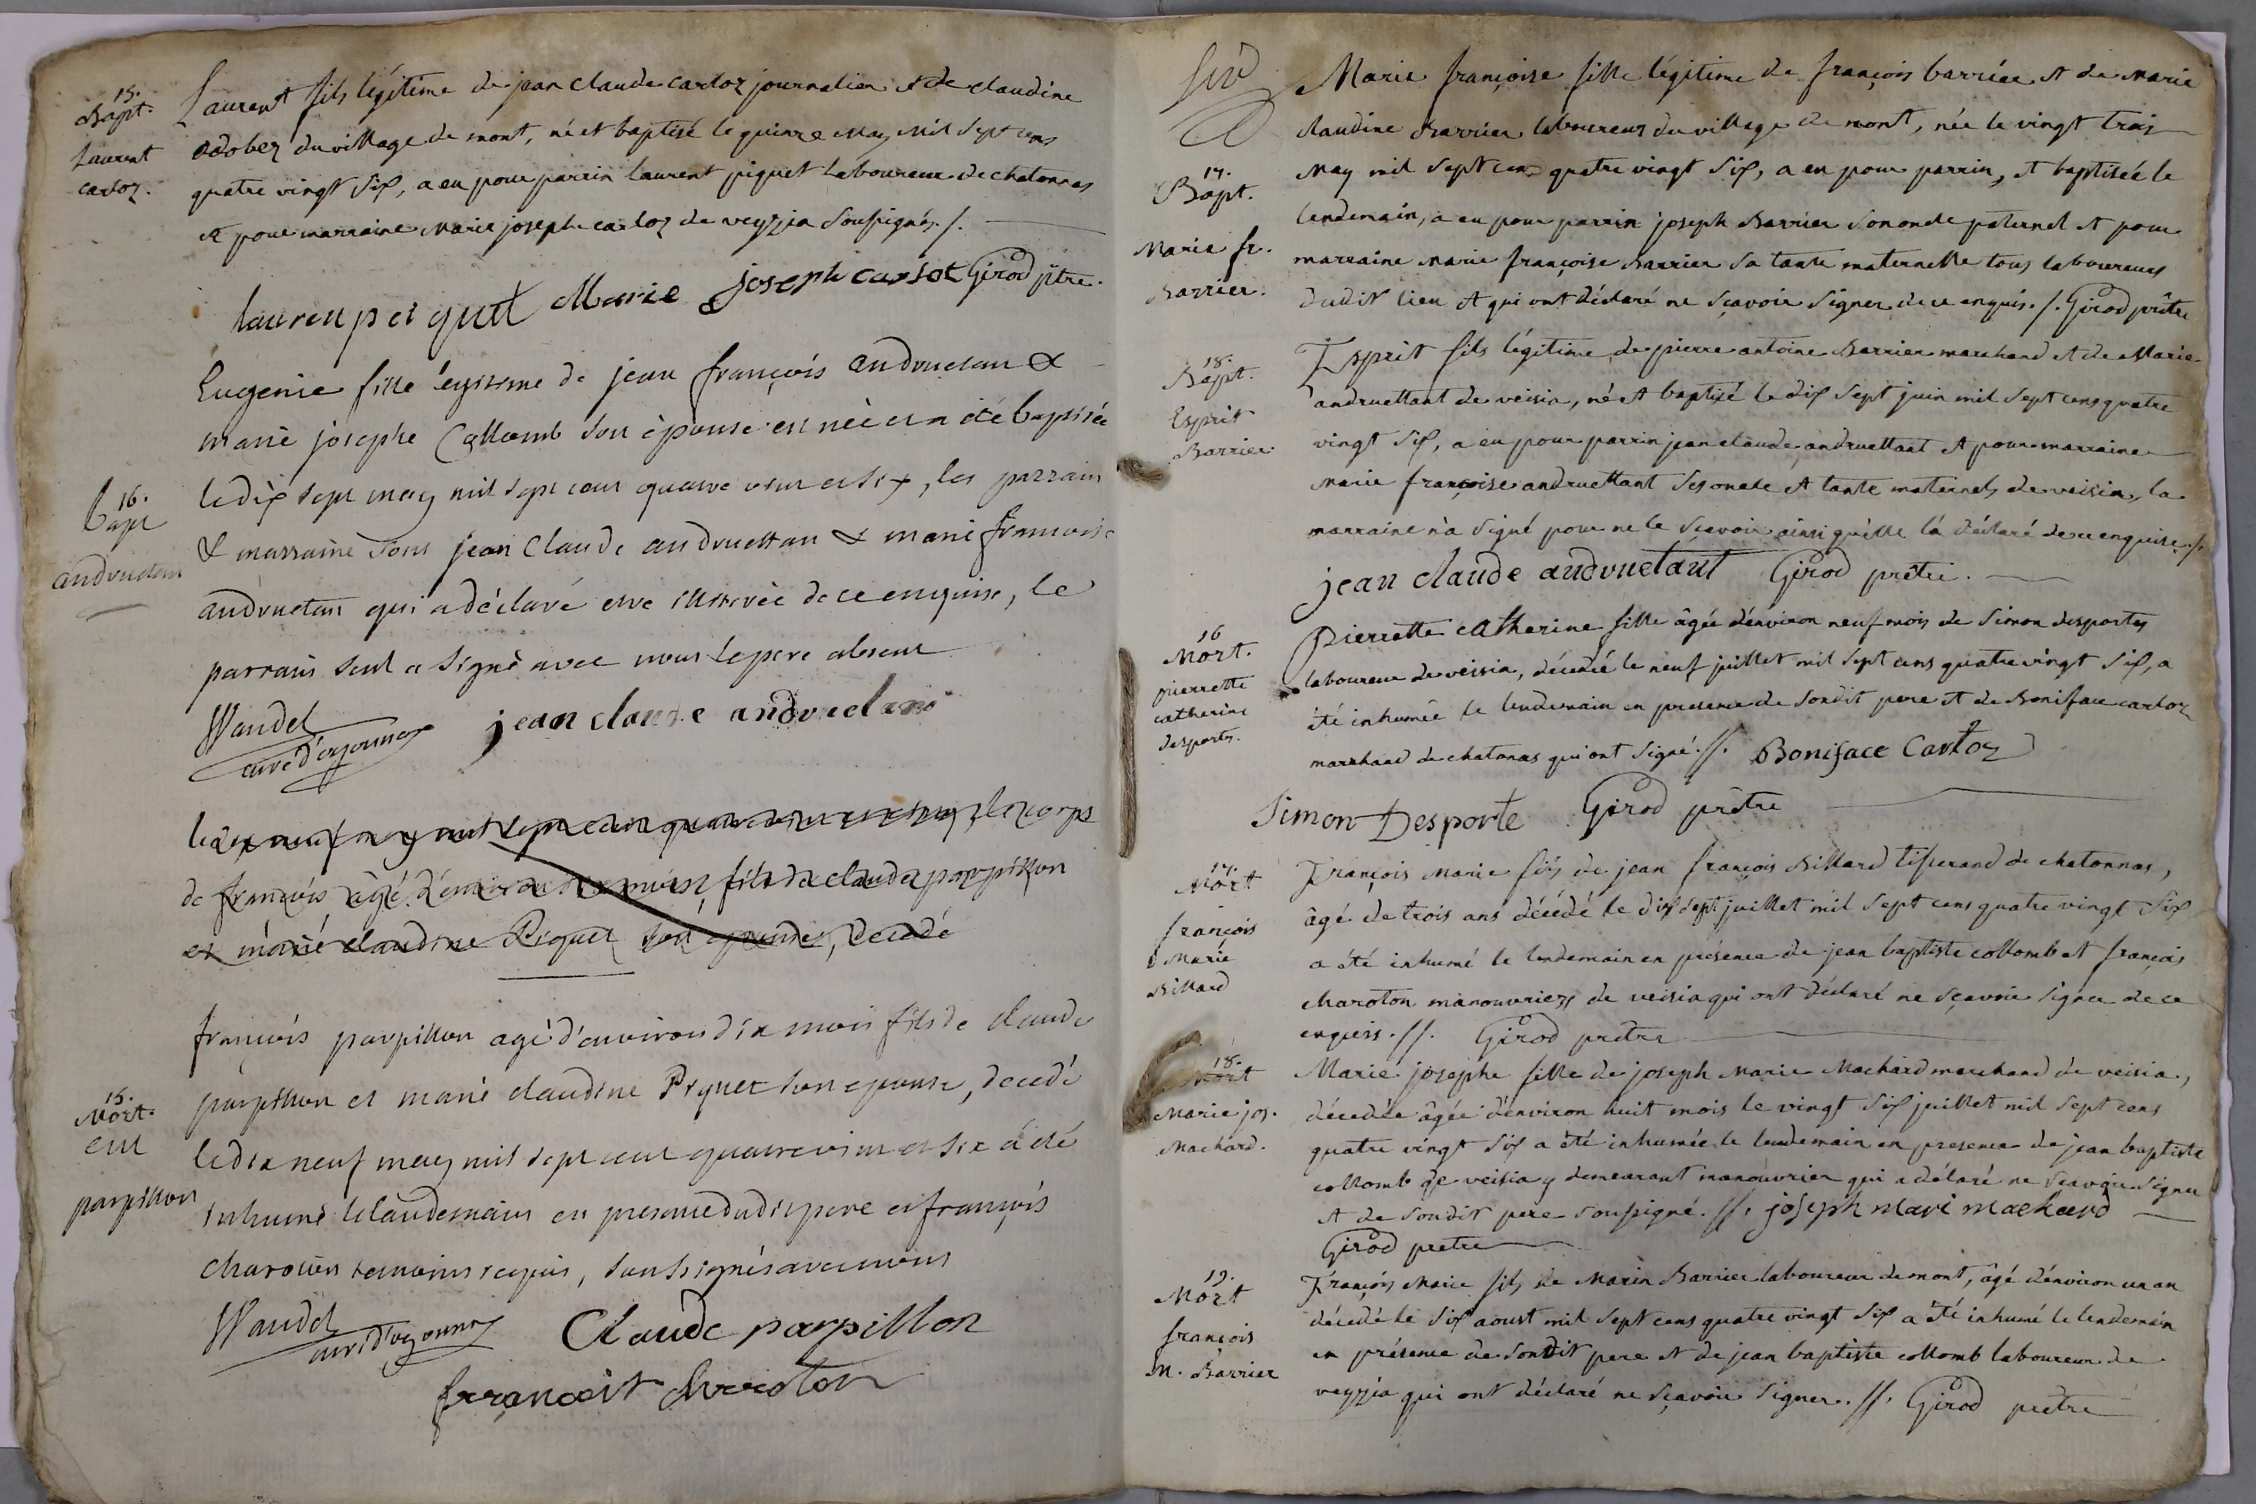 15.
Bapt.
Laurent
carloz.
Laurent fils légitime de jean claude carloz journalier et de claudine
odobez du village de mont, né et baptisé le quinze May Mil Sept cens
quatre vingt Six, a eu pour parrin laurent piguet Laboureur de chatonnas
et pour marraine Marie joseph carloz de veyzia Soussignés ./.
Marie joseph carlot Girod ptre.
16.
Bapt
Eugenie fille legitime de jean françois andruetan &
marie josephe Collomb son épouse est née et a été baptisée
le dix sept may mil sept cent quatre vint et six, les parrain
& marraine sont jean Claude andruettan & marie francoise
andruetan qui a déclaré etre illitérée de ce enquise, le
parrain seul a signé avec nous le pere absent
Wandel
curé d'oyonnax
jean claude andruetan
le dix neuf may mil sept cent quatre vint et six, le corps
de françois âgé d'environ dix mois, fils de claude parpillon
et marie claudine Piquet son épouse, decedé
15.
Mort.
enf
parpillon
françois parpillon agé d'environ dix mois fils de claude
parpillon et marie claudine Piquet son epouse, decedé
le dix neuf may mil sept cent quatre vint et six a été
inhumé le landemain en presence dudit pere et françois
charoton temoins requis, soussignés avec nous
Wandel
curé d'oyonnax
Claude parpillon
françoit charoton
17.
Bapt.
Marie fr.
Barrier.
Marie françoise fille légitime de françois barrier et de Marie
claudine Barrier laboureurs du village de mont, née le vingt trois
May mil Sept cens quatre vingt Six, a eu pour parrin, et baptisée le
lendemain, a eu pour parrin joseph Barrier Son oncle paternel et pour
marraine Marie françoise Barrier Sa tante maternelle tous laboureurs
dudit lieu et qui ont déclaré ne Sçavoir Signer de ce enquis ./. Girod prêtre
18.
Bapt.
Esprit
Barrier
Esprit fils légitime de pierre antoine Barrier marchand et de Marie
andruettant de veisia, né et baptisé le dix Sept juin mil Sept cens quatre
vingt Six, a eu pour parrin jean claude andruettant et pour marraine
Marie françoise andruettant Ses oncle et tante maternels de veisia, la
marraine n'a Signé pour ne le Sçavoir ainsi qu'elle l'a déclaré de ce enquise ./.
jean claude andruetant Girod prêtre.
16
Mort.
pierrette
catherine
desportes.
Pierrette Catherine fille âgée d'environ neuf mois de Simon desportes
laboureur de veisia, décedée le neuf juillet mil Sept cens quatre vingt Six, a
été inhumée le lendemain en presence de Sondit pere et de Boniface carloz
marchand de chatonnas qui ont Signé .//. Boniface Carloz
Simon Desporte Girod prêtre
17.
Mort
françois
Marie
Billard
François Marie fils de jean françois Billard tisserand de chatonnas,
âgé de trois ans décédé le dix sept juillet mil Sept cens quatre vingt Six
a été inhumé le lendemain en présence de jean baptiste collomb et françois
charoton manouvriers de veisia qui ont déclaré ne Sçavoir Signer de ce
enquis .//. Girod prêtre
18.
Mort
Marie jos.
Machard.
Marie josephe fille de joseph Marie Machard marchand de veisia,
décedée âgée d'environ huit mois le vingt Six juillet mil Sept cens
quatre vingt Six a été inhumée le lendemain en presence de jean baptiste
collomb de veisia y demeurant manouvrier qui a déclaré ne Sçavoir Signer
et de Sondit pere Soussigné .//. joseph mari machard
Girod pretre
19.
Mort
françois
M. Barrier
François Marie fils de Marin Barrier laboureur de mont, âgé d'environ un an
décedé le Six aoust mil Sept cens quatre vingt Six a été inhumé le lendemain
en présence de Sondit pere et de jean baptiste collomb laboureur de
veyzia qui ont déclaré ne Sçavoir Signer .//. Girod pretre